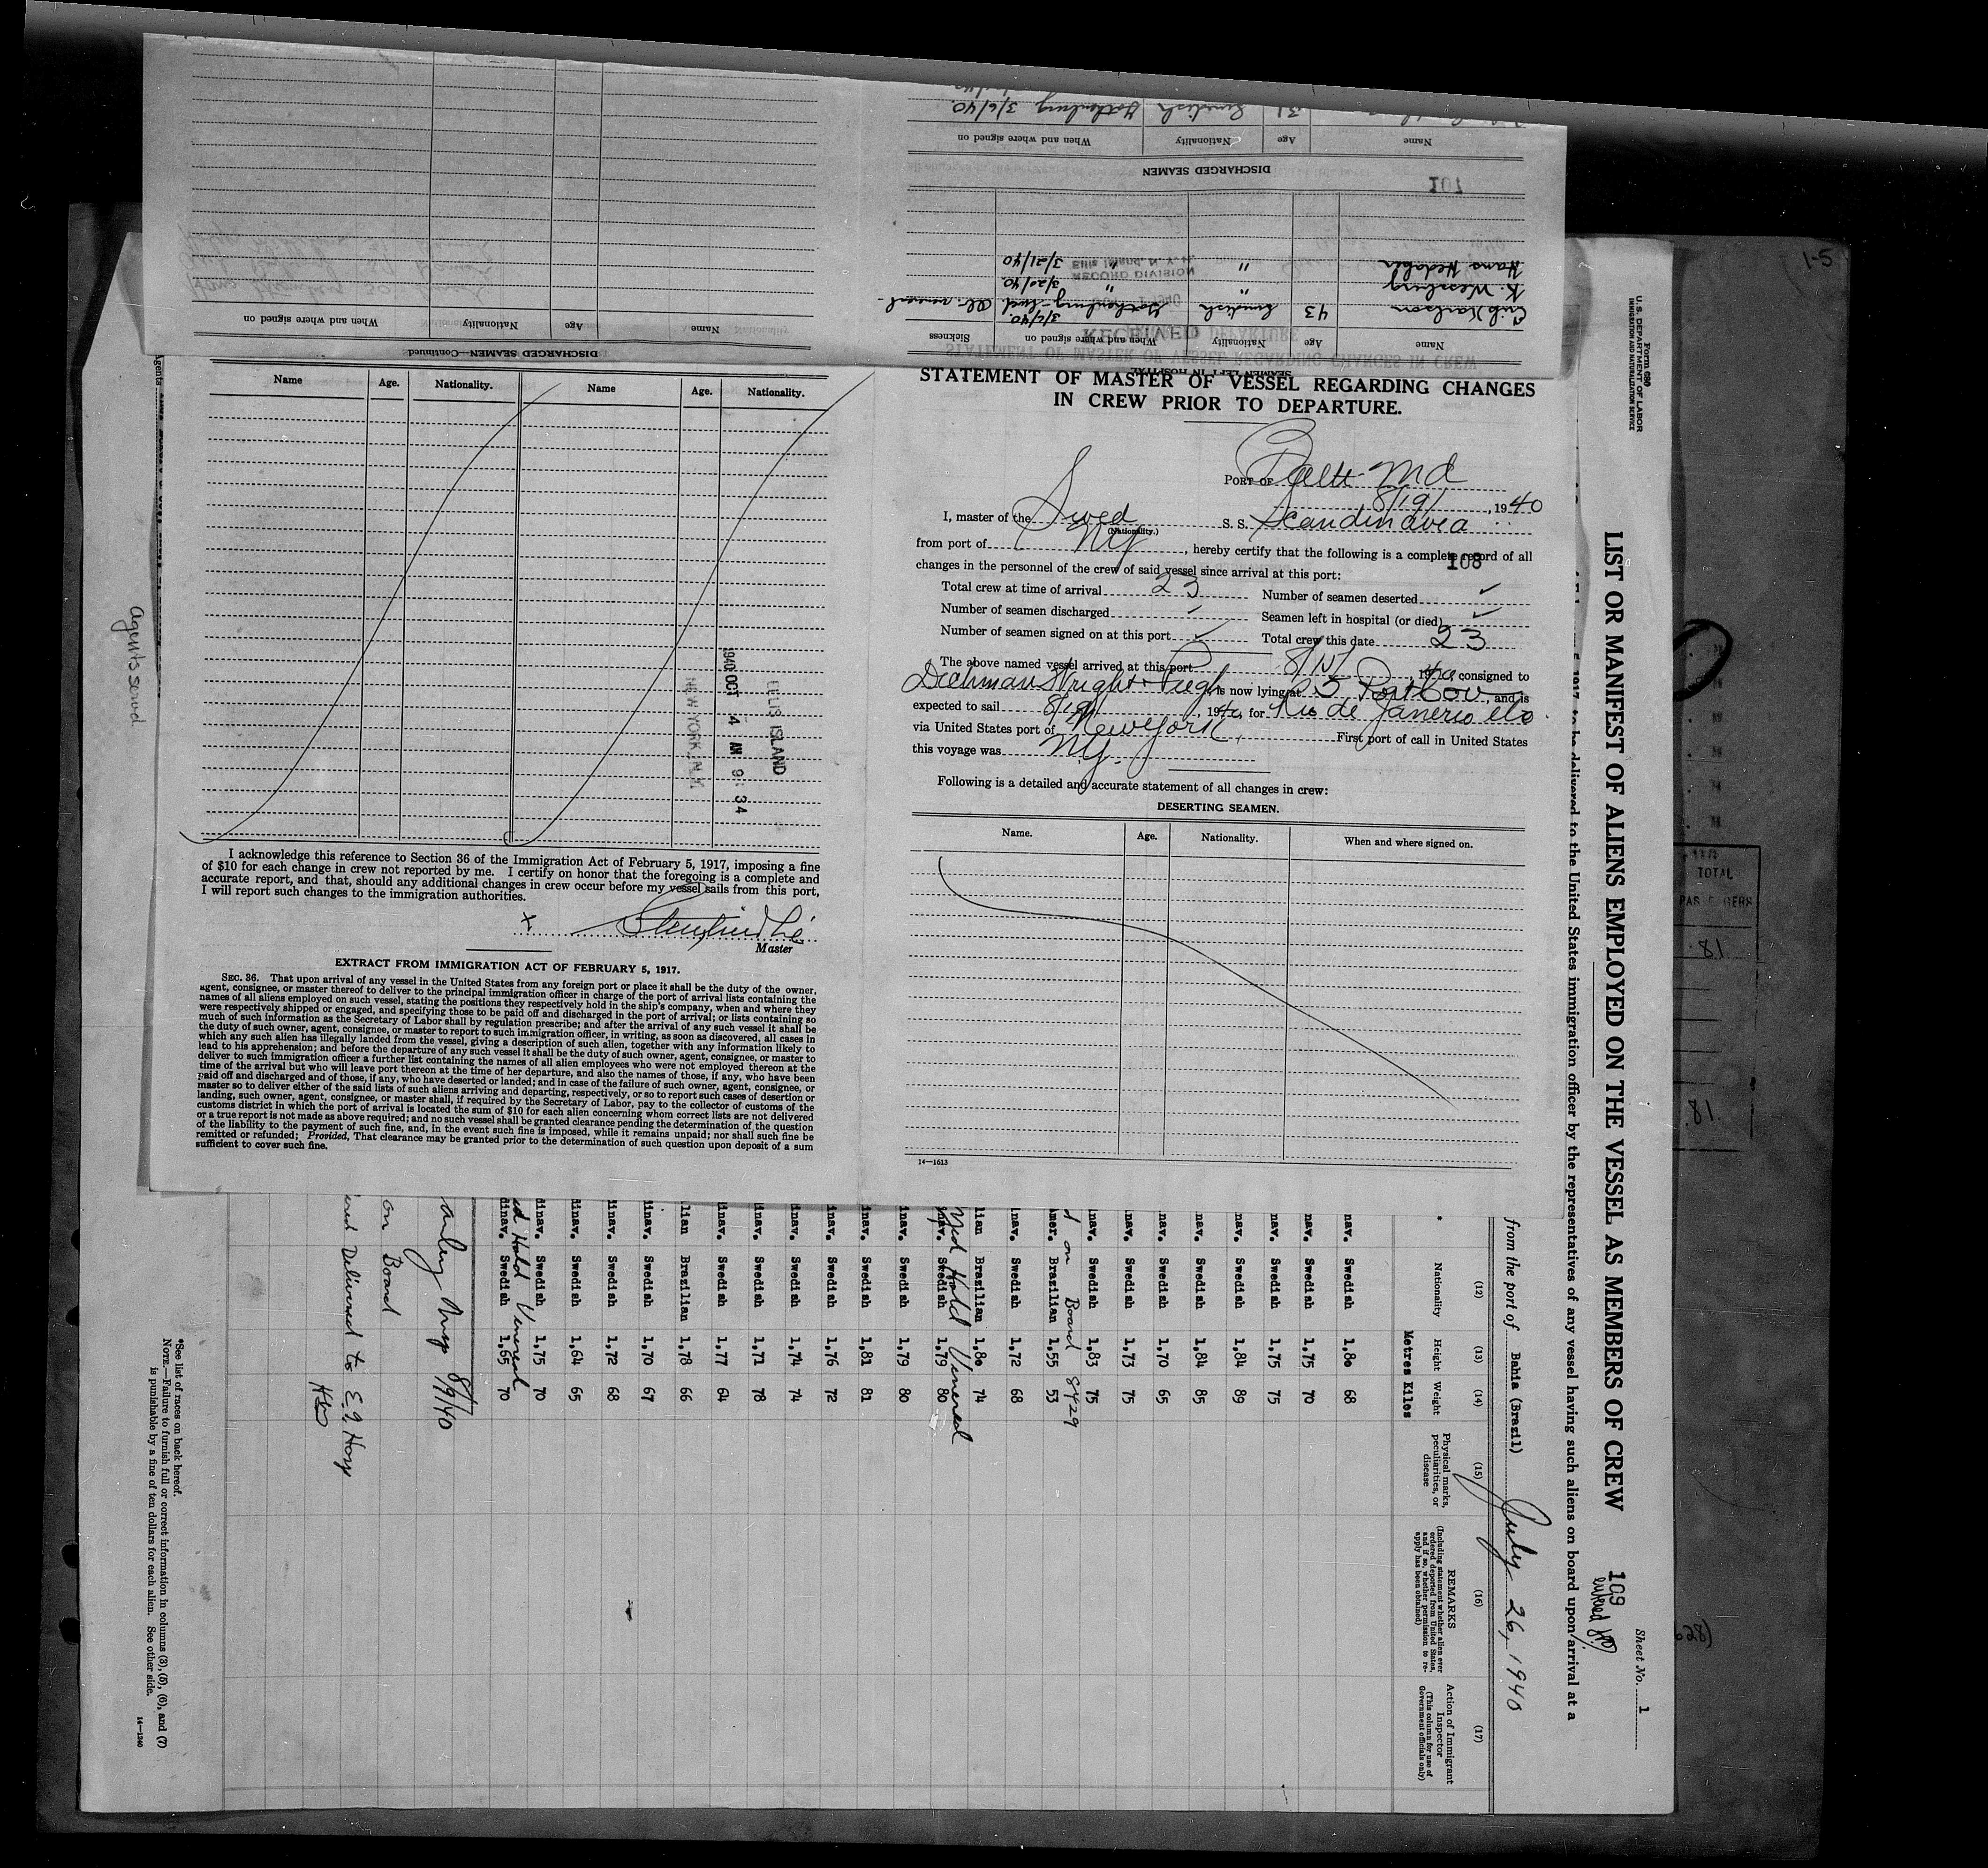 STATEMENT OF MASTER OF VESSEL REGARDING CHANGES
IN CREW PRIOR TO DEPARTURE.
PORT OF Balto Md
8/19/, 1940
I, master of the Swed S. S. Scandinavia
(Nationality.)
from port of NY, hereby certify that the following is a complete record of all
108
changes in the personnel of the crew of said vessel since arrival at this port:
Total crew at time of arrival 23 Number of seamen deserted ✓
Number of seamen discharged ✓ Seamen left in hospital (or died) ✓
Number of seamen signed on at this port ✓ Total crew this date 23
The above named vessel arrived at this port 8/15/ 1940 consigned to
Dichman Wright & Pugh is now lying at 5 Port Cov and is
expected to sail 8/19/, 1940, for Rio de Janerio etc.
via United States port of New York, First port of call in United States
this voyage was NY.
Following is a detailed and accurate statement of all changes in crew:
DESERTING SEAMEN.
Name. Age. Nationality. When and where signed on.
14—1613
Name Age. Nationality. Name Age. Nationality.
1940 OCT 4 AM 9: 34
ELLIS ISLAND
NEW YORK, N.Y.
I acknowledge this reference to Section 36 of the Immigration Act of February 5, 1917, imposing a fine
of $10 for each change in crew not reported by me. I certify on honor that the foregoing is a complete and
accurate report, and that, should any additional changes in crew occur before my vessel sails from this port,
I will report such changes to the immigration authorities.
x
Master
EXTRACT FROM IMMIGRATION ACT OF FEBRUARY 5, 1917.
SEC. 36. That upon arrival of any vessel in the United States from any foreign port or place it shall be the duty of the owner,
agent, consignee, or master thereof to deliver to the principal immigration officer in charge of the port of arrival lists containing the
names of all aliens employed on such vessel, stating the positions they respectively hold in the ship's company, when and where they
were respectively shipped or engaged, and specifying those to be paid off and discharged in the port of arrival; or lists containing so
much of such information as the Secretary of Labor shall by regulation prescribe; and after the arrival of any such vessel it shall be
the duty of such owner, agent, consignee, or master to report to such immigration officer, in writing, as soon as discovered, all cases in
which any such alien has illegally landed from the vessel, giving a description of such alien, together with any information likely to
lead to his apprehension; and before the departure of any such vessel it shall be the duty of such owner, agent, consignee, or master to
deliver to such immigration officer a further list containing the names of all alien employees who were not employed thereon at the
time of the arrival but who will leave port thereon at the time of her departure, and also the names of those, if any, who have been
paid off and discharged and of those, if any, who have deserted or landed; and in case of the failure of such owner, agent, consignee, or
master so to deliver either of the said lists of such aliens arriving and departing, respectively, or so to report such cases of desertion or
landing, such owner, agent, consignee, or master shall, if required by the Secretary of Labor, pay to the collector of customs of the
customs district in which the port of arrival is located the sum of $10 for each alien concerning whom correct lists are not delivered
or a true report is not made as above required; and no such vessel shall be granted clearance pending the determination of the question
of the liability to the payment of such fine, and, in the event such fine is imposed, while it remains unpaid; nor shall such fine be
remitted or refunded; Provided, That clearance may be granted prior to the determination of such question upon deposit of a sum
sufficient to cover such fine.
Agents served
SEAMEN LEFT IN HOSPITAL
Name Age Nationality When and where signed on Sickness
Erik Karlson 43 Swedish Gothenburg 3/6/40.
K. Wessberg " " 3/20/40.
Hans Hedaker " " 3/21/40
RECEIVED
RECORD DIVISION
Ellis Island, N. Y. H.
107
DISCHARGED SEAMEN
Name Age Nationality When and where signed on
31 Swedish Gothenburg 3/6/40.
DISCHARGED SEAMEN—Continued
Name Age Nationality When and where signed on
Form 680
U. S. DEPARTMENT OF LABOR
IMMIGRATION AND NATURALIZATION SERVICE
LIST OR MANIFEST OF ALIENS EMPLOYED ON THE VESSEL AS MEMBERS OF CREW
109
Sheet No. 1
1917, to be delivered to the United States immigration officer by the representatives of any vessel having such aliens on board upon arrival at a
from the port of Bahia (Brazil) July 26, 1940
(12) (13) (14) (15) (16) (17)
Nationality Height Weight
Physical marks, peculiarities, or disease
REMARKS
(Including statement whether alien ever ordered deported from United States, and if so, whether permission to reapply has been obtained)
Action of Immigrant Inspector
(This column for use of Government officials only)
Metres Kilos
nav. Swedish 1,80 68
nav. Swedish 1,75 70
nav. Swedish 1,75 75
nav. Swedish 1,84 89
nav. Swedish 1,84 85
nav. Swedish 1,70 65
nav. Swedish 1,73 75
nav. Swedish 1,83 75
d on Board 8429
amer. Brazilian 1,55 53
nav. Swedish 1,72 68
lian Brazilian 1,80 74
Med Hold Venereal
nav. Swedish 1,79 80
nav. Swedish 1,79 80
inav. Swedish 1,81 81
inav. Swedish 1,76 72
inav. Swedish 1,74 74
inav. Swedish 1,71 78
inav. Swedish 1,77 64
lian Brazilian 1,78 66
inav. Swedish 1,70 67
dinav. Swedish 1,72 68
dinav. Swedish 1,64 65
dinav. Swedish 1,75 70
ed Hold Venereal
dinav. Swedish 1,65 70
8/9/40
on Board
ered Delivered to E.I. Hosp
*See list of races on back hereof.
NOTE.—Failure to furnish full or correct information in columns (3), (5), (6), and (7)
is punishable by a fine of ten dollars for each alien. See other side.
14—1240
1-5
TOTAL
81
81
628)